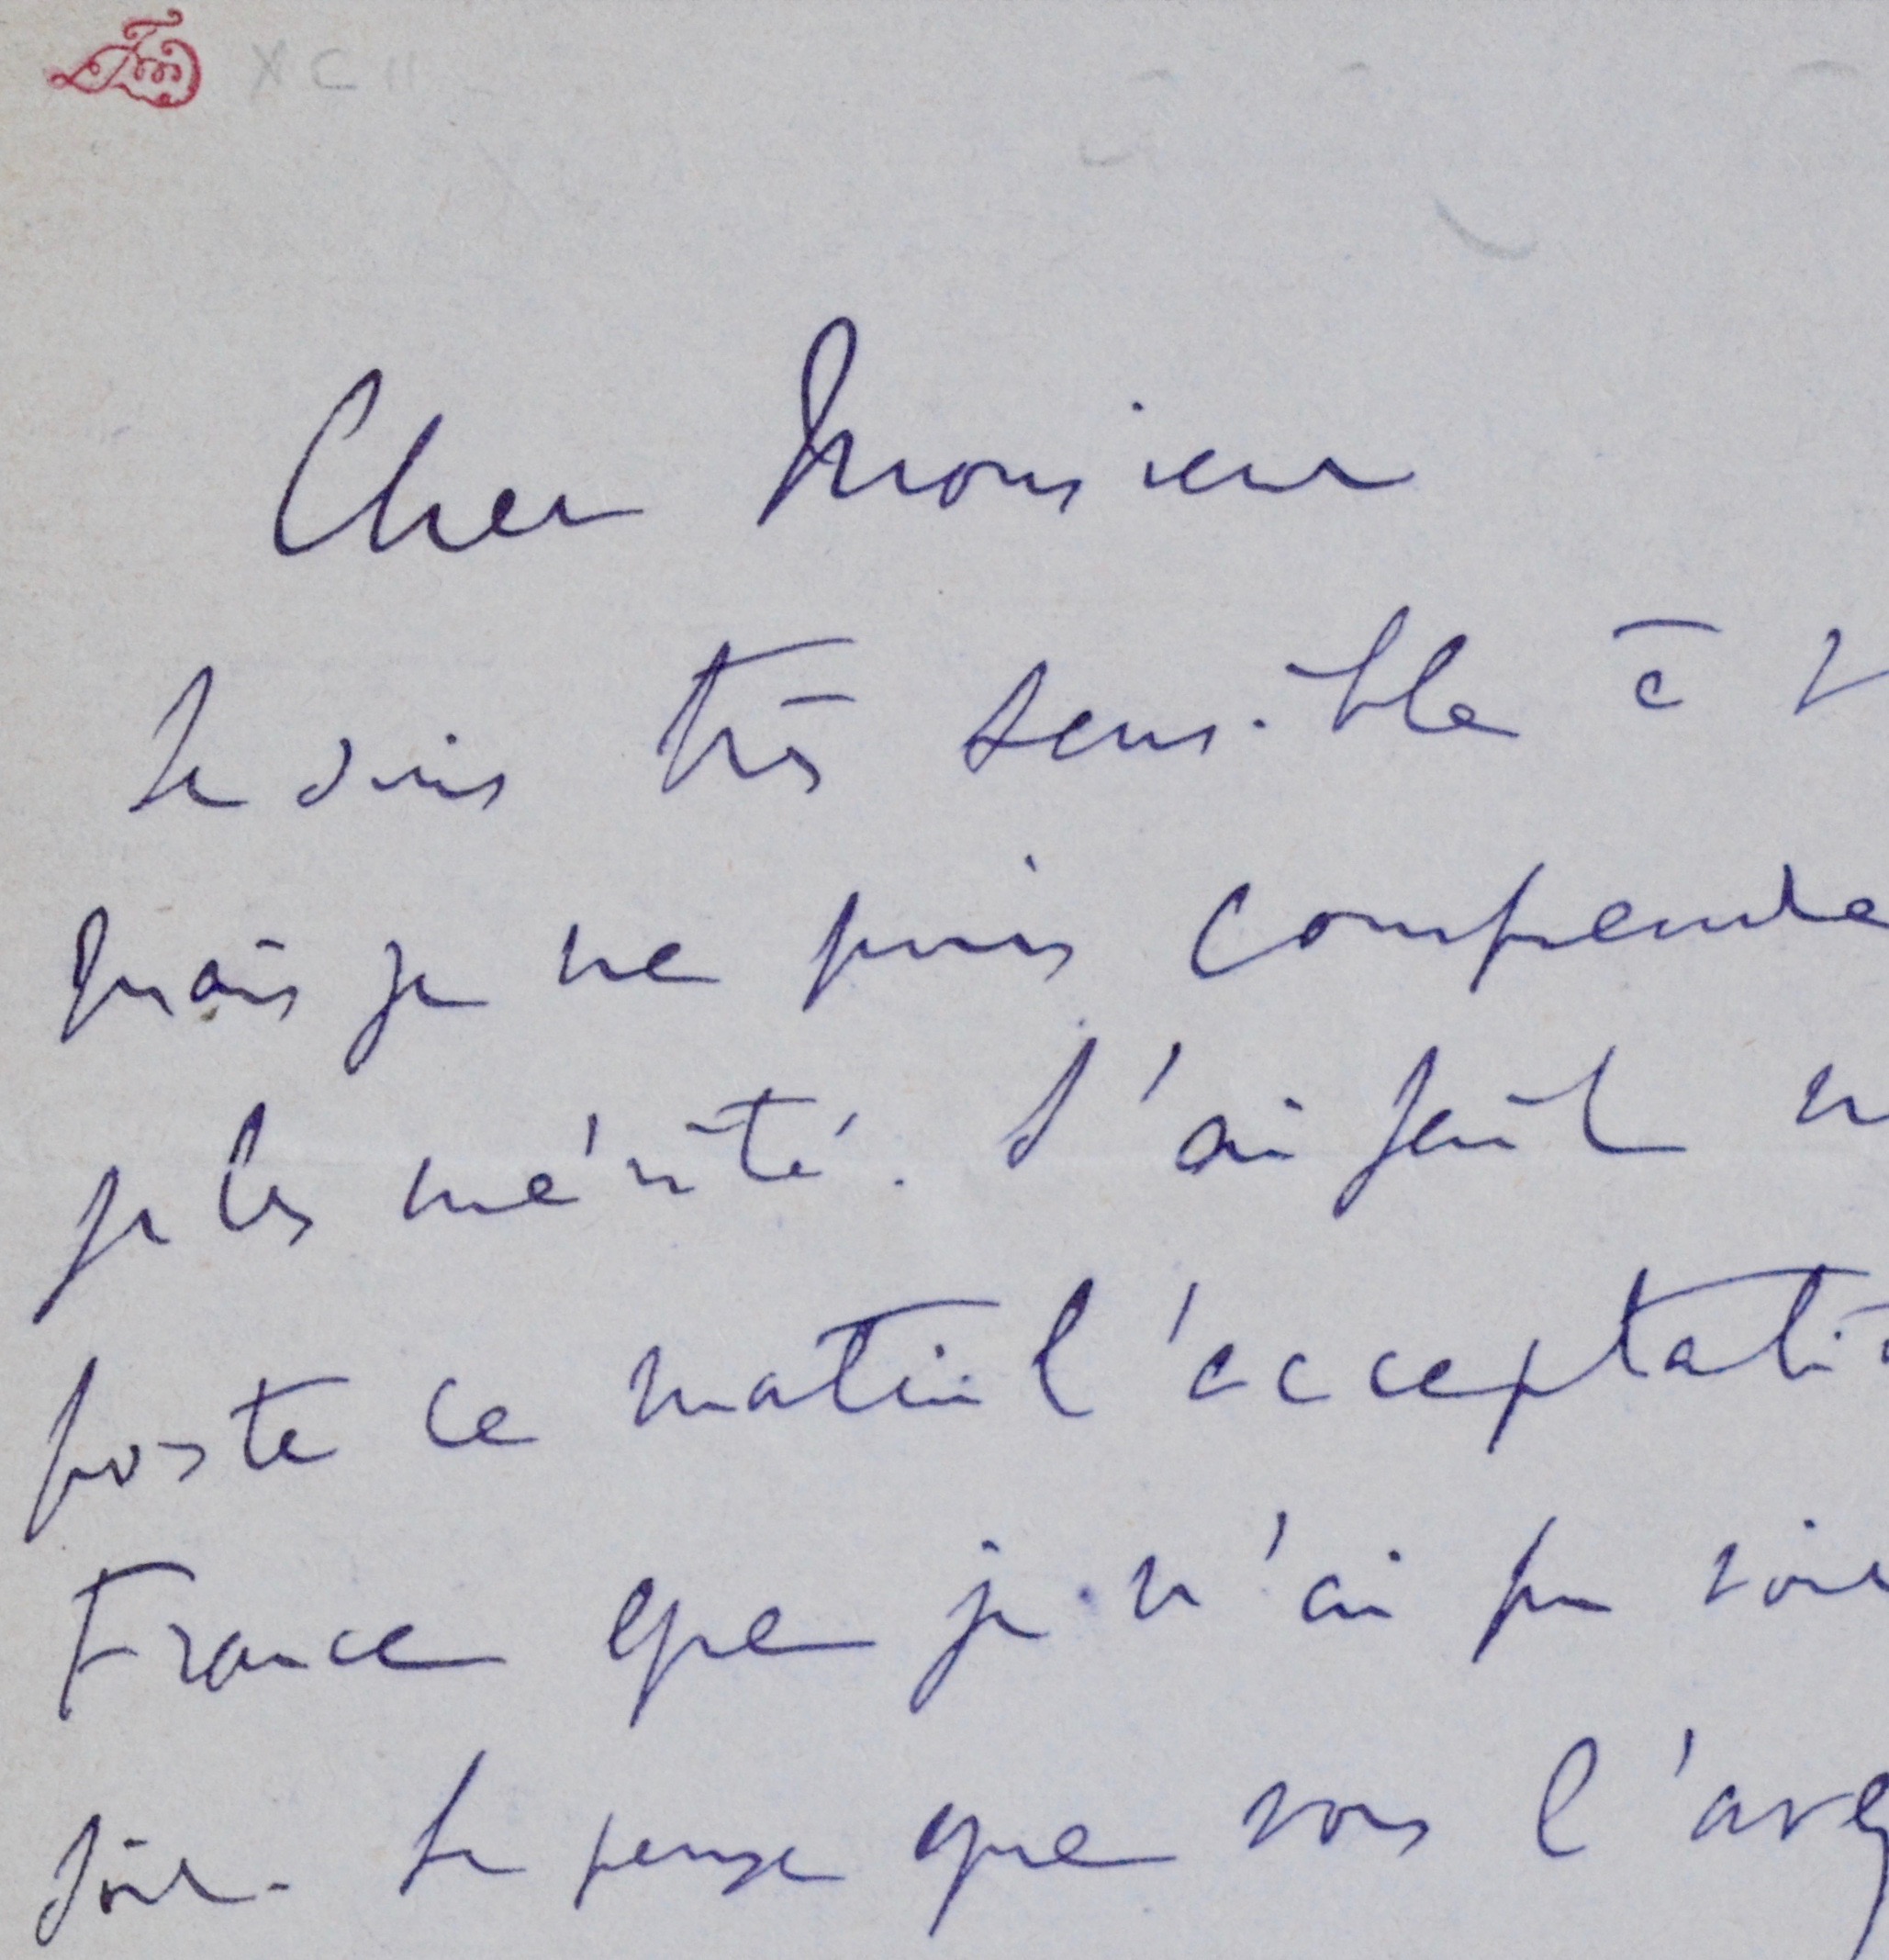 XCII
Cher Monsieur
Je suis très sensible à v
mais je ne puis comprendre
je les mérité. J'ai fait
poste ce matin l'acceptatio
France que je n'ai pu voir
soir. Je pense que vous l'avez